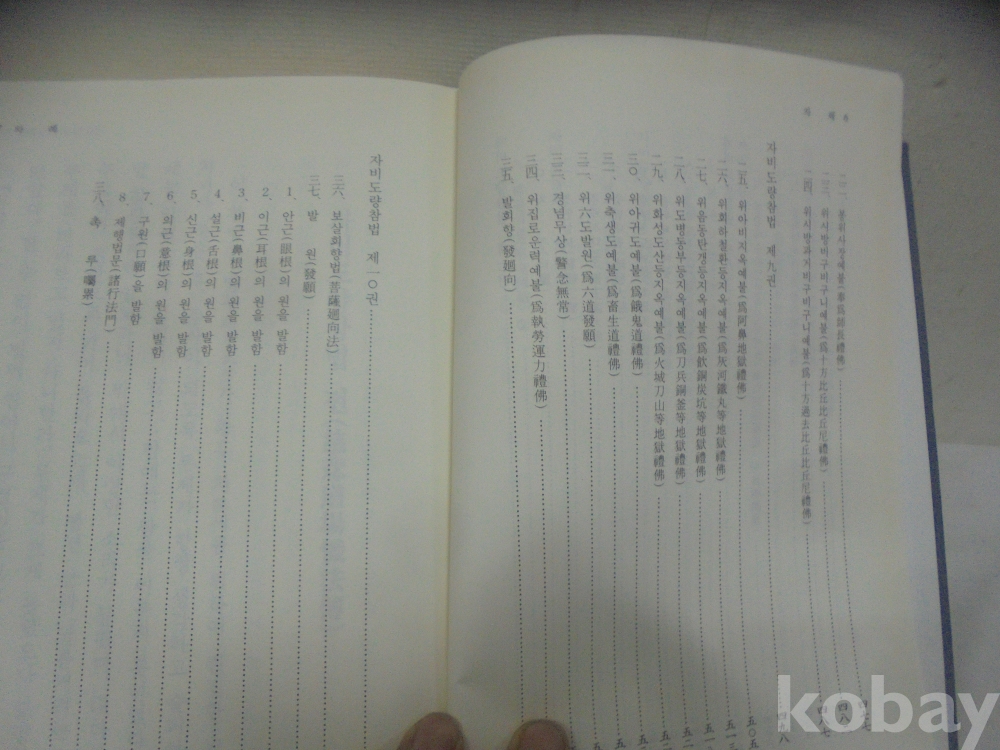 二二. 봉위사장예불(奉爲師長禮佛)
二三. 위시방비구비구니예불(爲十方比丘比丘尼禮佛)
二四. 위시방과거비구비구니예불(爲十方過去比丘比丘尼禮佛)
자비도량참법 제九권
二五. 위아비지옥예불(爲阿鼻地獄禮佛)
二六. 위회하철환등지옥예불(爲灰河鐵丸等地獄禮佛)
二七. 위음동탄갱등지옥예불(爲飮銅炭坑等地獄禮佛)
二八. 위도병동부등지옥예불(爲刀兵銅釜等地獄禮佛)
二九. 위화성도산등지옥예불(爲火城刀山等地獄禮佛)
三〇. 위아귀도예불(爲餓鬼道禮佛)
三一. 위축생도예불(爲畜生道禮佛)
三二. 위六도발원(爲六道發願)
三三. 경념무상(警念無常)
三四. 위집로운력예불(爲執勞運力禮佛)
三五. 발회향(發廻向)
자비도량참법 제一〇권
三六. 보살회향법(菩薩廻向法)
三七. 발 원(發願)
1. 안근(眼根)의 원을 발함
2. 이근(耳根)의 원을 발함
3. 비근(鼻根)의 원을 발함
4. 설근(舌根)의 원을 발함
5. 신근(身根)의 원을 발함
6. 의근(意根)의 원을 발함
7. 구원(口願)을 발함
8. 제행법문(諸行法門)
三八. 촉 루(囑累)
kobay